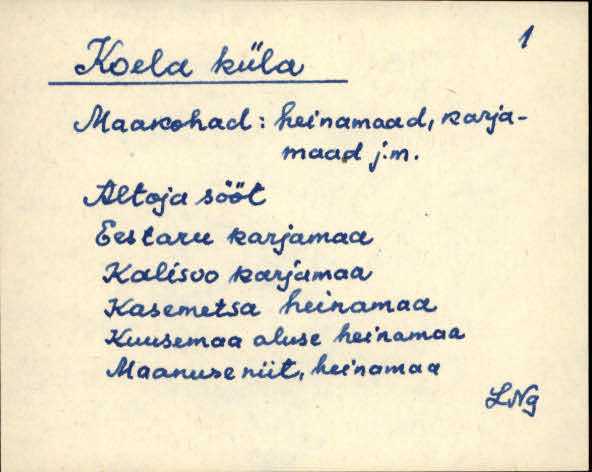 1
Koela küla
Maakohad: heinamaad, karja-
maad j.m.
Altoja sööt
Eestaru karjamaa
Kalisoo karjamaa
Kasemetsa heinamaa
Kuusemaa aluse heinamaa
Maanuse niit, heinamaa
LNg